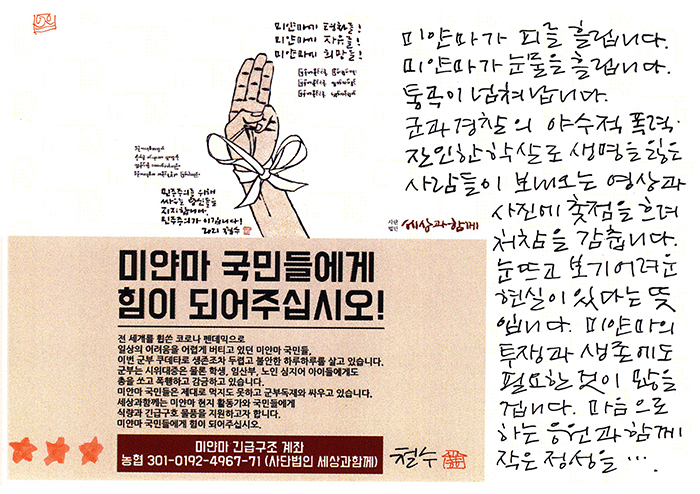 미얀마에 평화를!
미얀마에 자유를!
미얀마에 희망을!
민주주의를 위해
싸우는 당신들을
지지합니다.
민주주의가 이깁니다!
2021 철수
사단
법인 세상과함께
미얀마 국민들에게
힘이 되어주십시오!
전 세계를 휩쓴 코로나 펜데믹으로
일상의 어려움을 어렵게 버티고 있던 미얀마 국민들,
이번 군부 쿠데타로 생존조차 두렵고 불안한 하루하루를 살고 있습니다.
군부는 시위대중은 물론 학생, 임산부, 노인 심지어 아이들에게도
총을 쏘고 폭행하고 감금하고 있습니다.
미얀마 국민들은 제대로 먹지도 못하고 군부독재와 싸우고 있습니다.
세상과함께는 미얀마 현지 활동가와 국민들에게
식량과 긴급구호 물품을 지원하고자 합니다.
미얀마 국민들에게 힘이 되어주십시오.
미얀마 긴급구조 계좌
농협 301-0192-4967-71 (사단법인 세상과함께)
철수
미얀마가 피를 흘립니다.
미얀마가 눈물을 흘립니다.
통곡이 넘쳐납니다.
군과 경찰의 야수적 폭력·
잔인한 학살로 생명을 잃은
사람들이 보내오는 영상과
사진에 촛점을 흐려
처참을 감춥니다.
눈뜨고 보기 어려운
현실이 있다는 뜻
입니다. 미얀마의
투쟁과 생존에도
필요한 것이 많을
겁니다. 마음으로
하는 응원과 함께
작은 정성을 ….